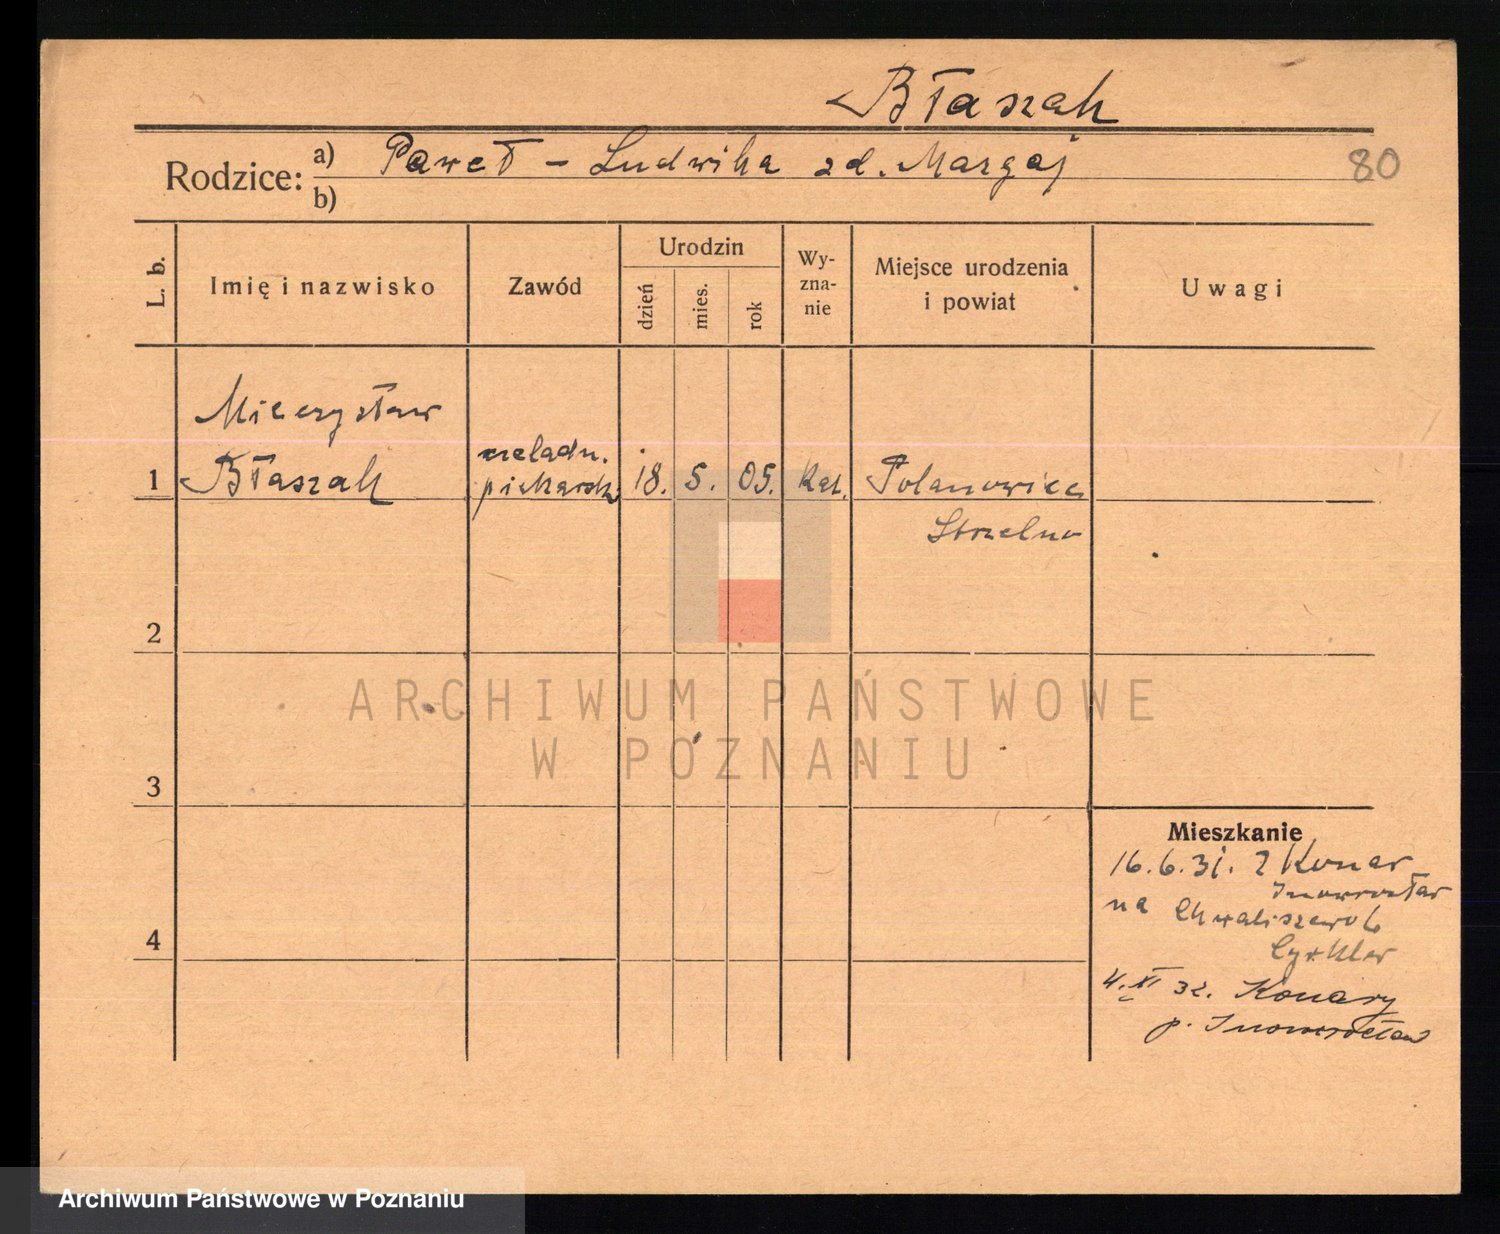 Błaszak
Rodzice: a) Paweł - Ludwika zd. Margaj
b)
80
L. b.
Imię i nazwisko
Zawód
Urodzin
dzień
mies.
rok
Wy-
zna-
nie
Miejsce urodzenia
i powiat
Uwagi
Mieczysław
1 Błaszak
czeladn.
piekarsk.
18. 5. 05. Kat.
Polanowice
Strzelno
2
3
4
Mieszkanie
16.6.31. z Konar
Inowrocław
na Chwaliszewo
4. XI 32. Konary
p. Inowrocław
ARCHIWUM PAŃSTWOWE
W POZNANIU
Archiwum Państwowe w Poznaniu